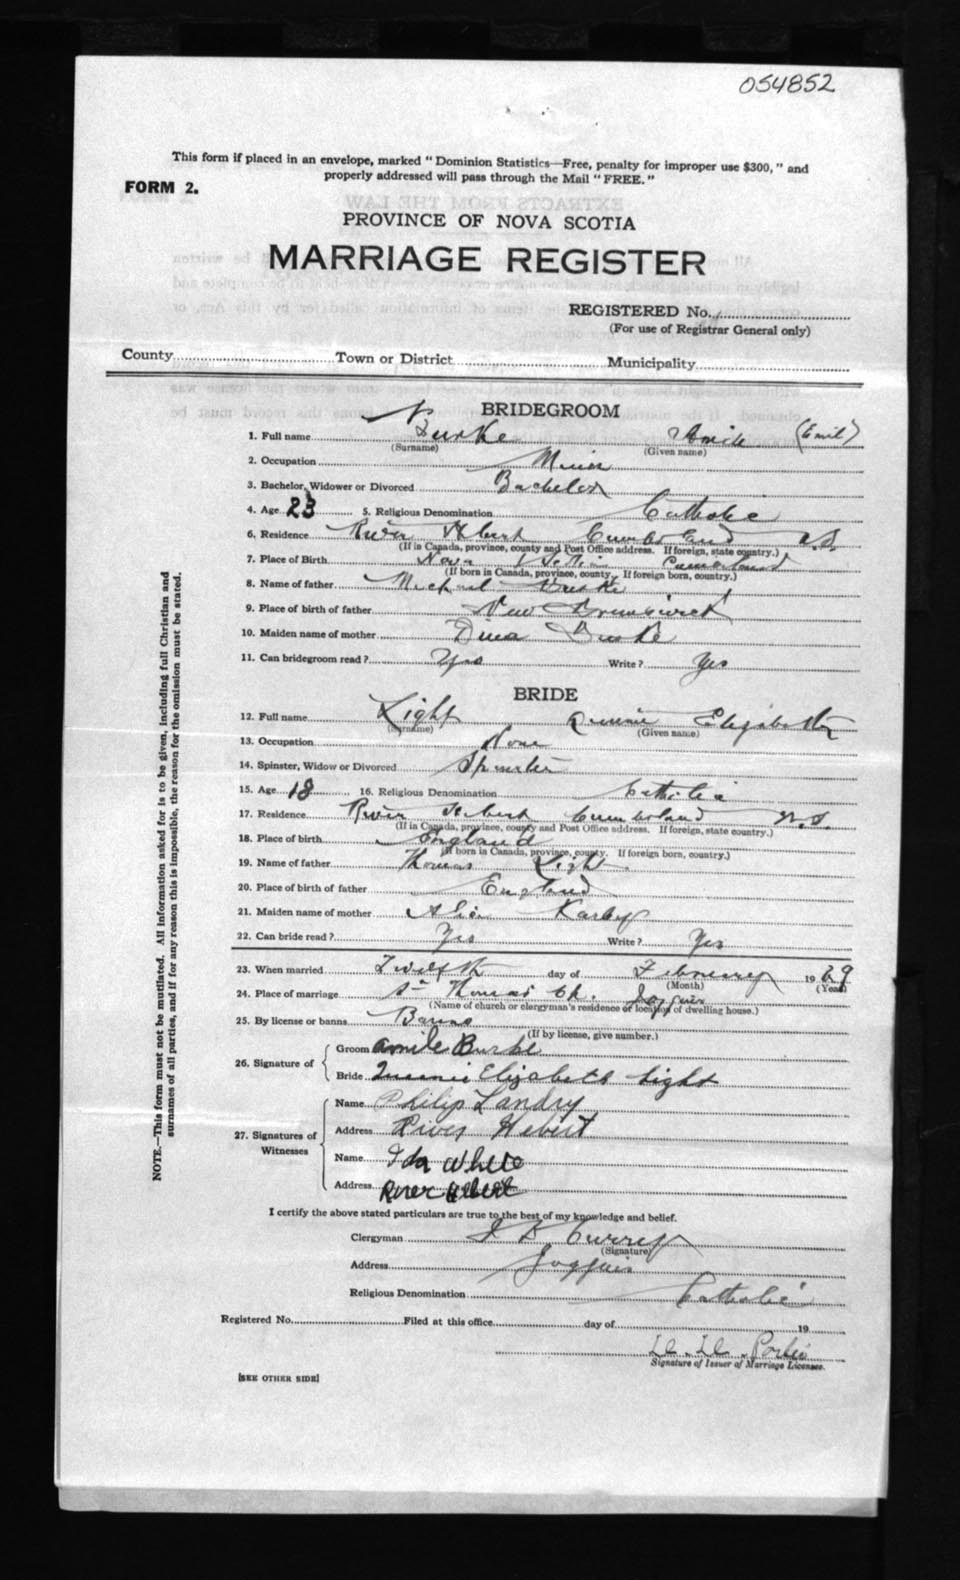 054852
This form if placed in an envelope, marked "Dominion Statistics—Free, penalty for improper use $300," and
properly addressed will pass through the Mail "FREE."
FORM 2.
PROVINCE OF NOVA SCOTIA
MARRIAGE REGISTER
REGISTERED No.
(For use of Registrar General only)
County Town or District Municipality
BRIDEGROOM
1. Full name Burke Amile (Emil)
(Surname) (Given name)
2. Occupation Miner
3. Bachelor, Widower or Divorced Bachelor
4. Age 23 5. Religious Denomination Catholic
6. Residence River Hebert Cumberland N.S.
(If in Canada, province, county and Post Office address. If foreign, state country.)
7. Place of Birth Nova Scotia Cumberland
(If born in Canada, province, county. If foreign born, country.)
8. Name of father Michael Burke
9. Place of birth of father New Brunswick
10. Maiden name of mother Dina Burke
11. Can bridegroom read? Yes Write? Yes
BRIDE
12. Full name Light Queenie Elizabeth
(Surname) (Given name)
13. Occupation None
14. Spinster, Widow or Divorced Spinster
15. Age 18 16. Religious Denomination Catholic
17. Residence River Hebert Cumberland N.S.
(If in Canada, province, county and Post Office address. If foreign, state country.)
18. Place of birth England
(If born in Canada, province, county. If foreign born, country.)
19. Name of father Thomas Light
20. Place of birth of father England
21. Maiden name of mother Alice
22. Can bride read? Yes Write? Yes
23. When married Twelfth day of February 1929
(Month) (Year)
24. Place of marriage St Thomas Ch. Joggins
(Name of church or clergyman's residence or location of dwelling house.)
25. By license or banns Banns
(If by license, give number.)
26. Signature of
Groom Amile Burke
Bride Queenie Elizabeth Light
27. Signatures of Witnesses
Name Philip Landry
Address River Hebert
Name Ida White
Address River Hebert
I certify the above stated particulars are true to the best of my knowledge and belief.
Clergyman J D Currey
(Signature)
Address Joggins
Religious Denomination Catholic
Registered No. Filed at this office day of 19
Porter
Signature of Issuer of Marriage Licenses.
[SEE OTHER SIDE]
NOTE.—This form must not be mutilated. All information asked for is to be given, including full Christian and
surnames of all parties, and if for any reason this is impossible, the reason for the omission must be stated.